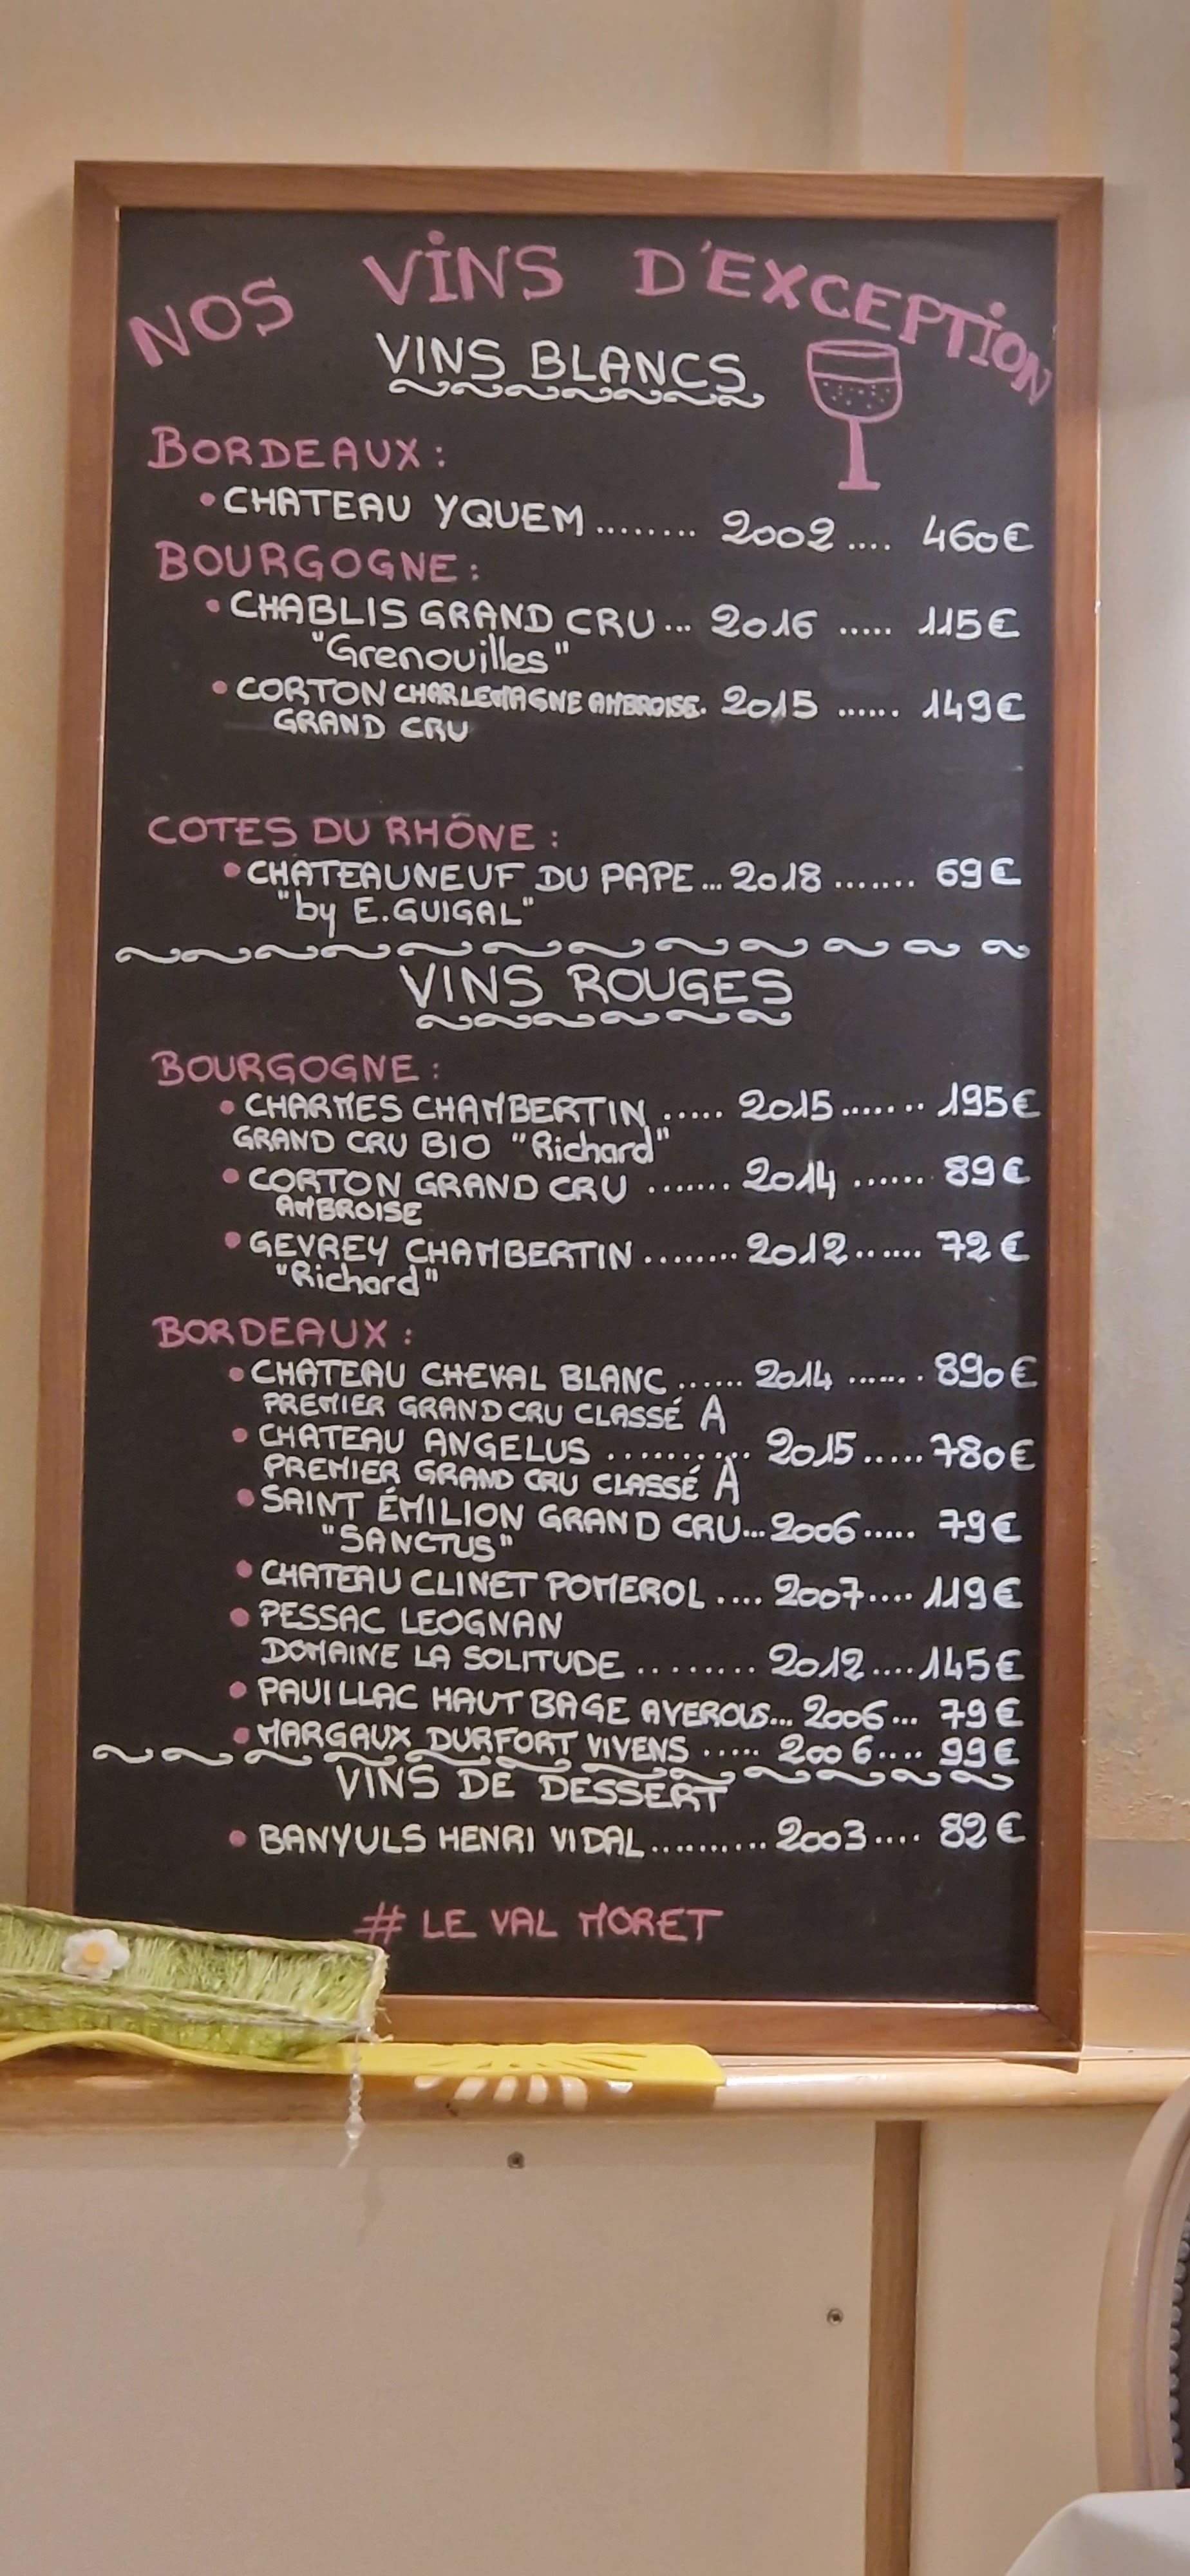 NOS VINS D'EXCEPTION
VINS BLANCS
BORDEAUX :
• CHATEAU YQUEM ........ 2002 .... 460€
BOURGOGNE :
• CHABLIS GRAND CRU ... 2016 ..... 115€
"Grenouilles"
• CORTON CHARLEMAGNE AMBROISE. 2015 ...... 149€
GRAND CRU
COTES DU RHÔNE :
• CHATEAUNEUF DU PAPE ... 2018 ....... 69€
"by E.GUIGAL"
VINS ROUGES
BOURGOGNE :
• CHARMES CHAMBERTIN ..... 2015 ....... 195€
GRAND CRU BIO "Richard"
• CORTON GRAND CRU ....... 2014 ...... 89€
AMBROISE
• GEVREY CHAMBERTIN ........ 2012 ...... 72€
"Richard"
BORDEAUX :
• CHATEAU CHEVAL BLANC ...... 2014 ....... 890€
PREMIER GRAND CRU CLASSÉ A
• CHATEAU ANGELUS .......... 2015 ..... 780€
PREMIER GRAND CRU CLASSÉ A
• SAINT ÉMILION GRAND CRU ... 2006 ..... 79€
"SANCTUS"
• CHATEAU CLINET POMEROL .... 2007 .... 119€
• PESSAC LEOGNAN
DOMAINE LA SOLITUDE ........ 2012 .... 145€
• PAUILLAC HAUT BAGE AVEROUS... 2006 ... 79€
• MARGAUX DURFORT VIVENS ..... 2006 .... 99€
VINS DE DESSERT
• BANYULS HENRI VIDAL .......... 2003 .... 82€
# LE VAL MORET